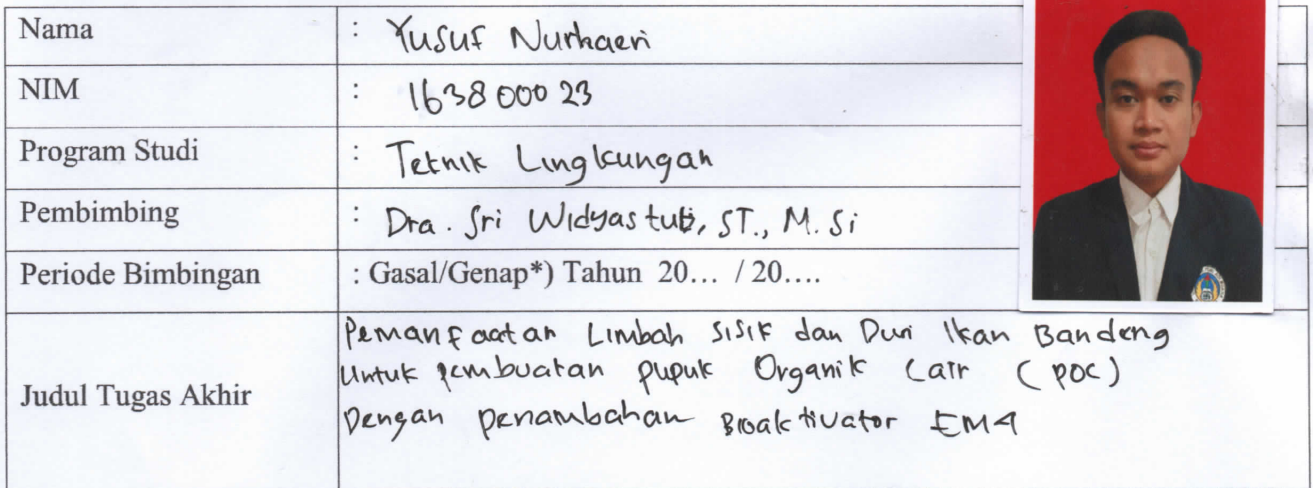 Nama : Yusuf Nurhaeri
NIM : 163800023
Program Studi : Teknik Lingkungan
Pembimbing : Dra. Sri Widyastuti, ST., M. Si
Periode Bimbingan : Gasal/Genap*) Tahun 20... / 20....
Judul Tugas Akhir
Pemanfaatan Limbah Sisik dan Duri Ikan Bandeng
Untuk pembuatan pupuk Organik Cair (POC)
Dengan penambahan Bioaktivator EM4